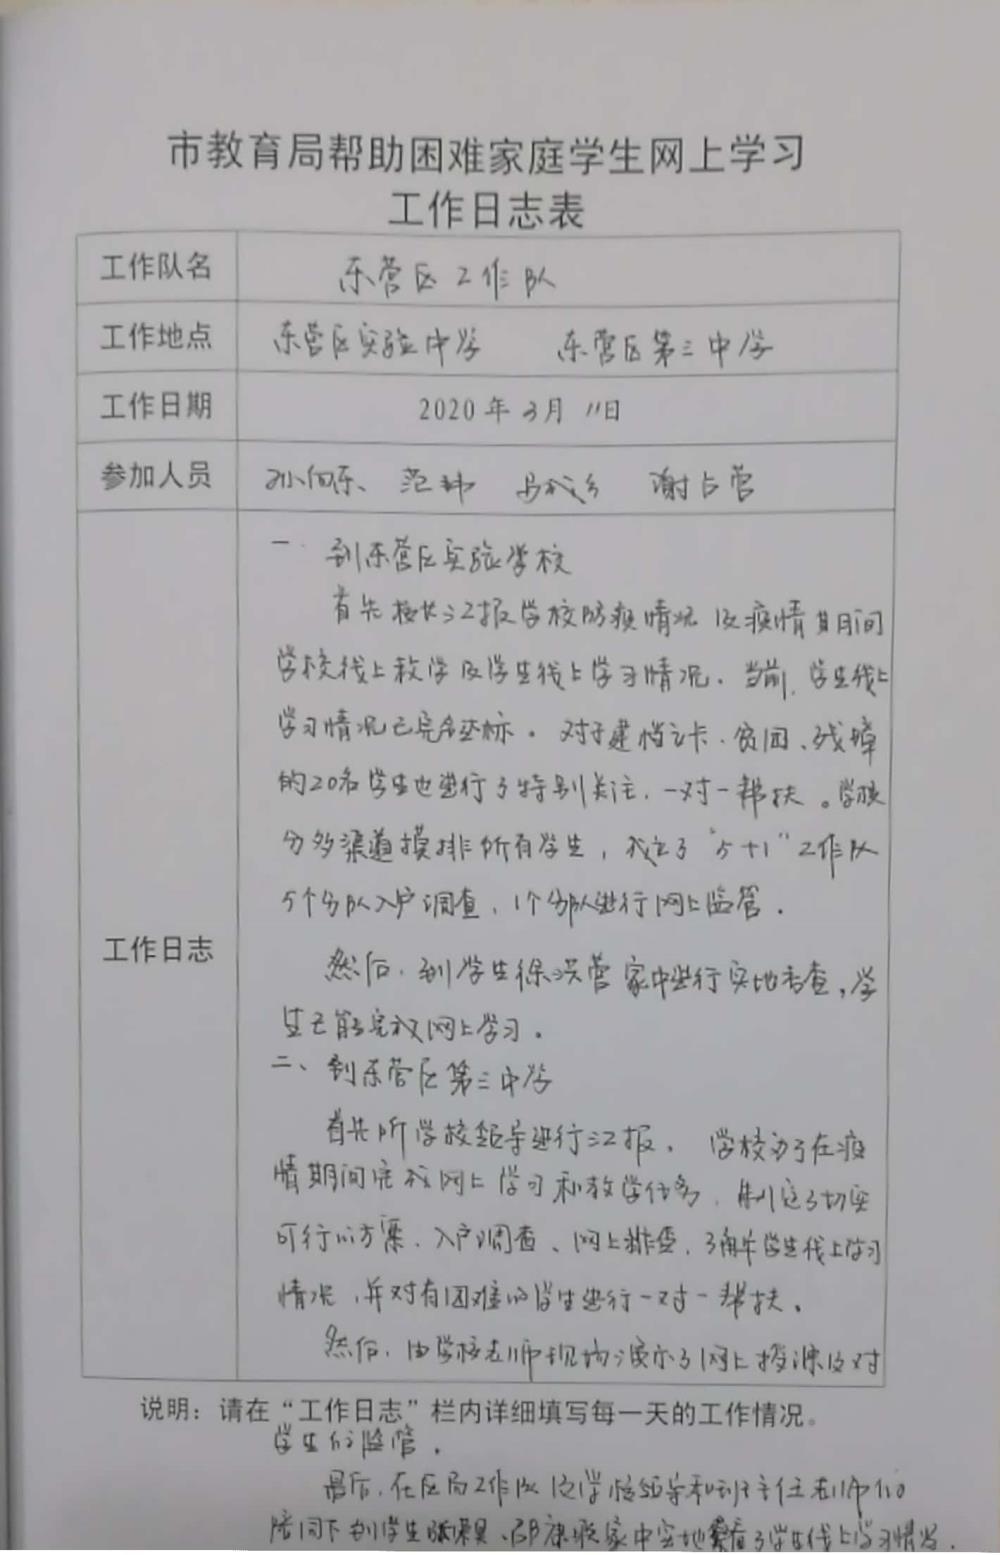 市教育局帮助困难家庭学生网上学习
工作日志表
工作队名 东营区工作队
工作地点 东营区实验中学 东营区第三中学
工作日期 2020年3月11日
参加人员 孙向东、范 谢占营
工作日志
一、到东营区实验学校
首先校长汇报学校防疫情况及疫情期间
学校线上教学及学生线上学习情况。当前,学生线上
学习情况已完全达标。对于建档立卡、贫困、残障
的20名学生也进行了特别关注,一对一帮扶。学校
分多渠道摸排所有学生,成立了“5+1”工作队
5个分队入户调查,1个分队进行网上监管。
然后,到学生徐洪营家中进行实地考查,学
生已能完成网上学习。
二、到东营区第三中学
首先听学校领导进行汇报。学校为了在疫
情期间完成网上学习和教学任务,制定了切实
可行的方案,入户调查、网上排查,了解学生线上学习
情况,并对有困难的学生进行一对一帮扶。
然后,由学校老师现场演示了网上授课及对
说明:请在“工作日志”栏内详细填写每一天的工作情况。
学生的监管。
最后,在区局工作队及学校领导和班主任老师的
陪同下到学生 家中实地查看了学生线上学习情况.